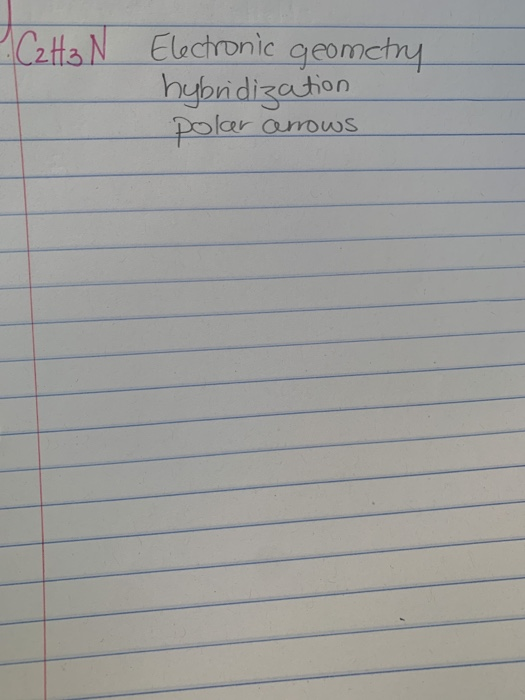 C2H3N Electronic geometry
hybridization
polar arrows